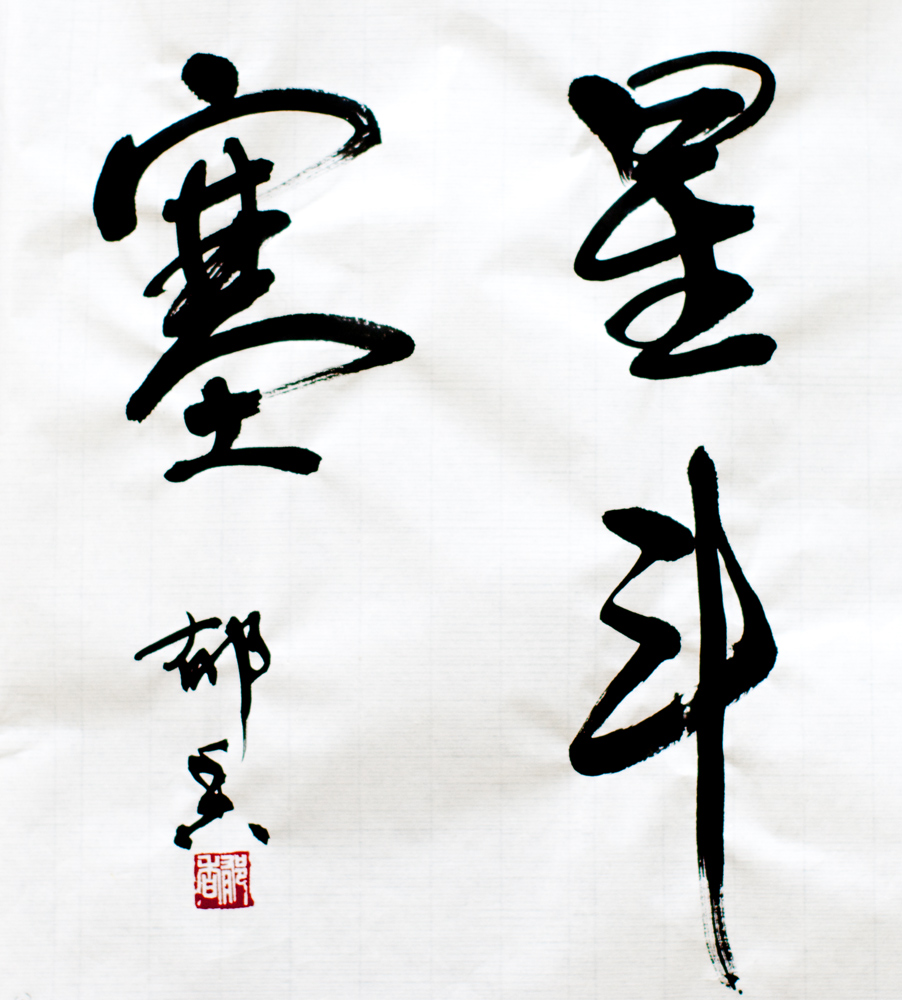 星斗
塞
郁